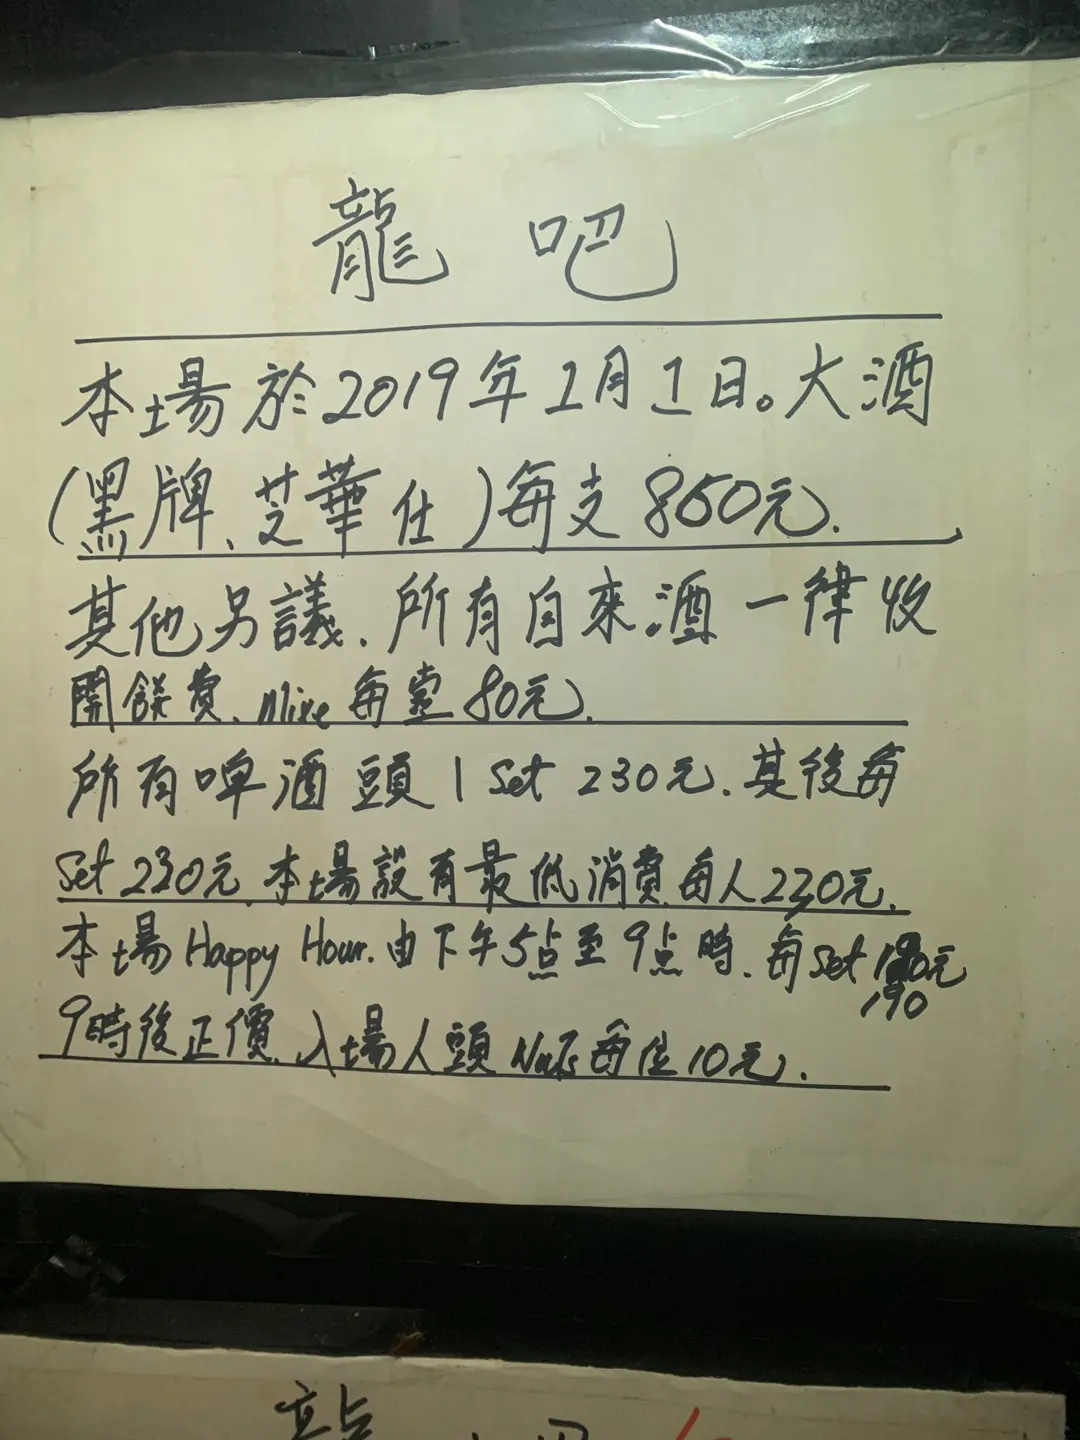 龍吧
本場於2019年1月1日。大酒
(黑牌、芝華仕)每支850元.
其他另議.所有自來酒一律收
開餸費.Mixe每壺80元.
所有啤酒頭1 Set 230元.其後每
Set 230元.本場設有最低消費每人230元.
本場Happy Hour.由下午5点至9点時.每Set 元
190
9時後正價.入場人頭Nuts每位10元.
龍吧